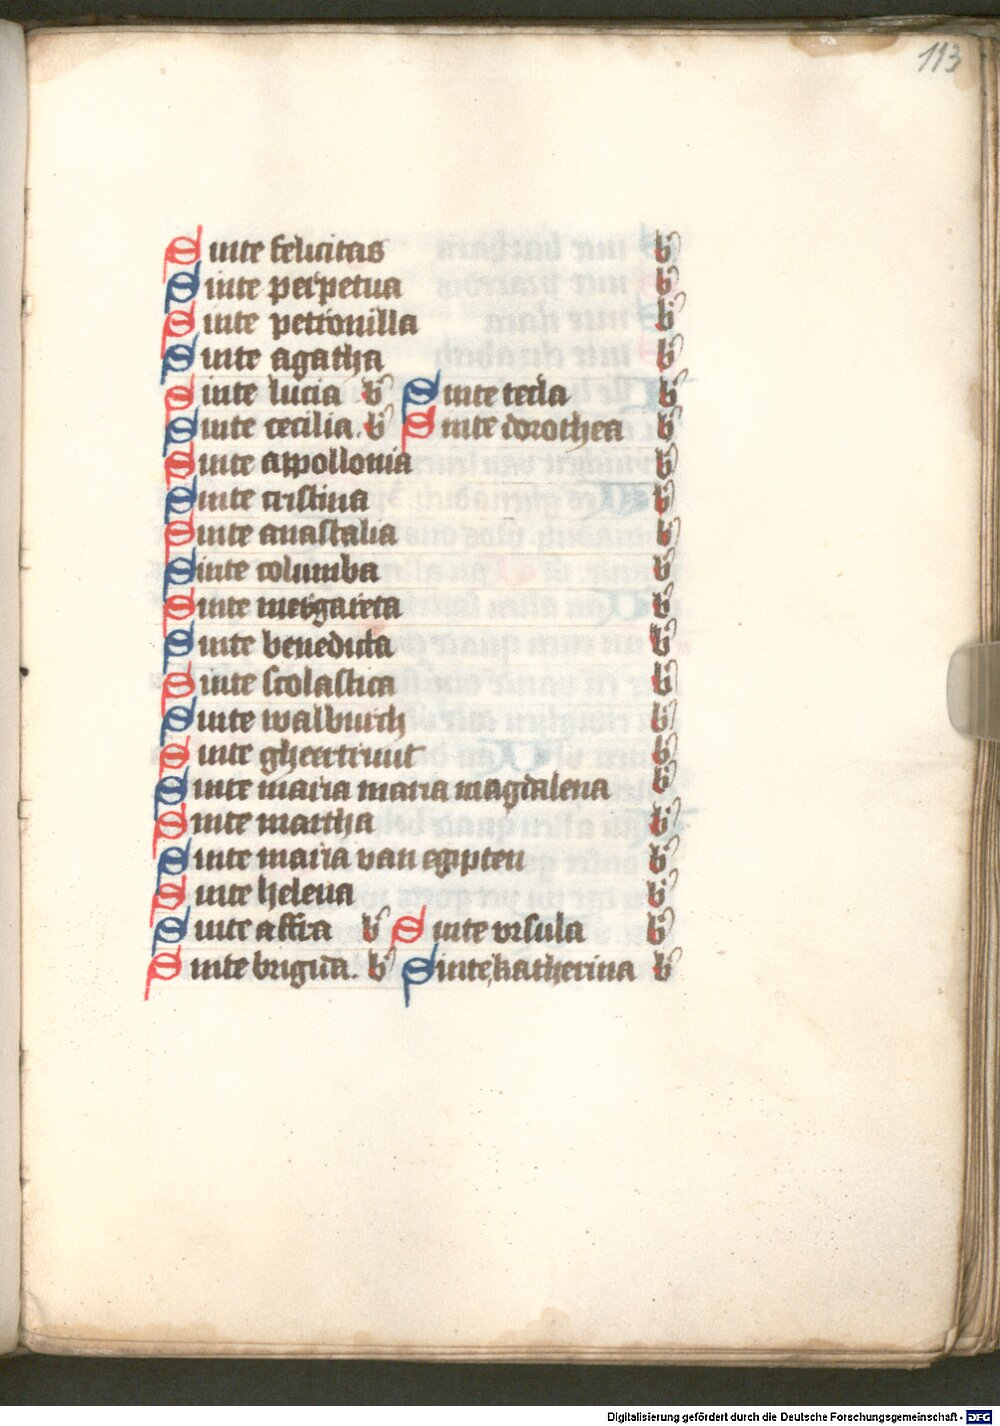 113
Sinte felicitas b
Sinte perpetua b
Sinte petronilla b
Sinte agatha b
Sinte lucia b Sinte tecla b
Sinte cecilia. b Sinte dorothea b
Sinte appollonia b
Sinte cristina b
Sinte anastasia b
Sinte columba b
Sinte mergareta b
Sinte benedicta b
Sinte scolastica b
Sinte walburch b
Sinte gheertruut b
Sinte maria maria magdalena b
Sinte martha b
Sinte maria van egipten b
Sinte helena b
Sinte affra b Sinte vrsula b
Sinte brigida. b Sinte katherina b
Digitalisierung gefördert durch die Deutsche Forschungsgemeinschaft - DFG